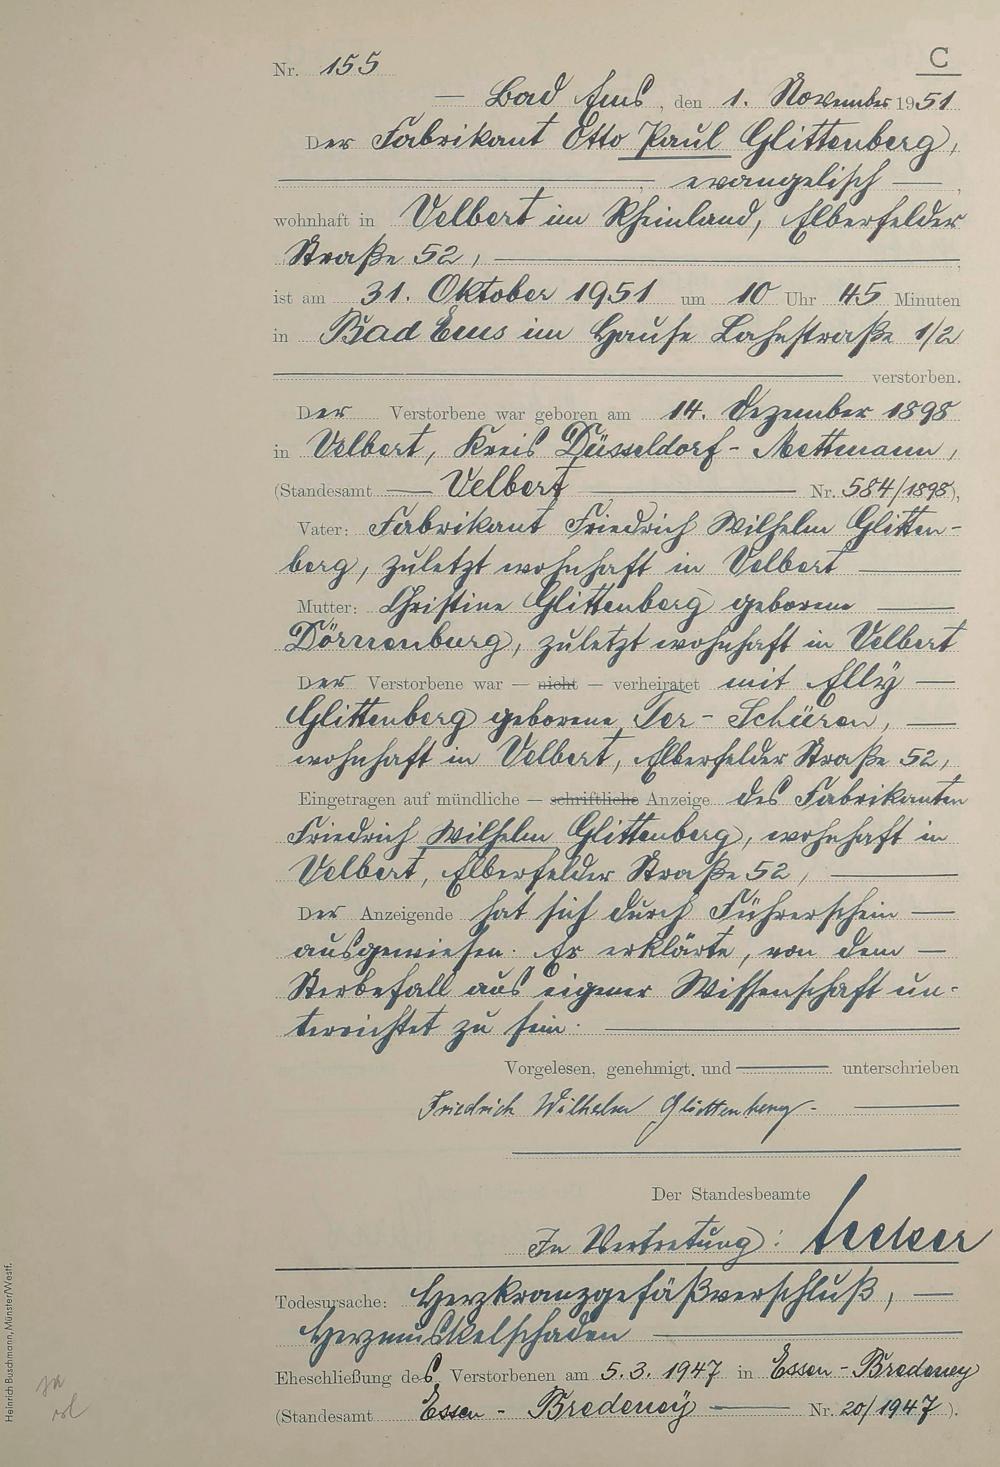 Nr. 155
C
— Bad Ems, den 1. November 1951
Der Fabrikant Otto Paul Glittenberg,
evangelisch —,
wohnhaft in Velbert im Rheinland, Elberfelder
Straße 52, —
ist am 31. Oktober 1951 um 10 Uhr 45 Minuten
in Bad Ems im Hause Lahnstraße 1/2
verstorben.
Der Verstorbene war geboren am 14. Dezember 1898
in Velbert, Kreis Düsseldorf-Mettmann,
(Standesamt — Velbert — Nr. 584/1898),
Vater: Fabrikant Friedrich Wilhelm Glitten-
berg, zuletzt wohnhaft in Velbert —
Mutter: Christine Glittenberg geborene —
Dörnenburg, zuletzt wohnhaft in Velbert
Der Verstorbene war — nicht — verheiratet mit Elly —
Glittenberg geborene Ter-Schüren, —
wohnhaft in Velbert, Elberfelder Straße 52,
Eingetragen auf mündliche — schriftliche Anzeige des Fabrikanten
Friedrich Wilhelm Glittenberg, wohnhaft in
Velbert, Elberfelder Straße 52, —
Der Anzeigende hat sich durch Führerschein —
ausgewiesen. Er erklärte, von dem —
Sterbefall aus eigener Wissenschaft un-
terrichtet zu sein. —
Vorgelesen, genehmigt, und — unterschrieben
Friedrich Wilhelm Glittenberg. —
Der Standesbeamte
In Vertretung:
Todesursache: Herzkranzgefäßverschluß, —
Herzmuskelschaden —
Eheschließung des Verstorbenen am 5.3.1947 in Essen-Bredeney
(Standesamt Essen-Bredeney — Nr. 20/1947).
Heinrich Buschmann, Münster/Westf.